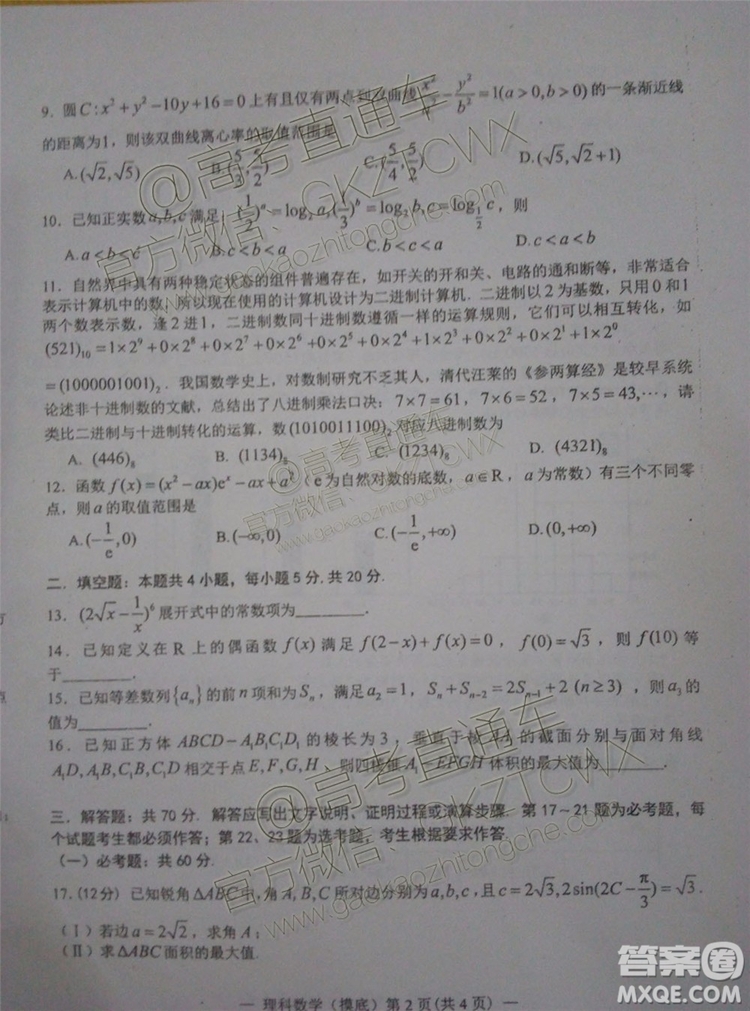 9. 圆C:x²+y²-10y+16=0上有且仅有两点到双曲线x²/a²-y²/b²=1(a>0,b>0)的一条渐近线
的距离为1，则该双曲线离心率的取值范围是
A.(√2,√5) B.(5/3,5/2) C.(5/4,5/2) D.(√5,√2+1)
10. 已知正实数a,b,c满足：(1/2)^a=log₂a,(1/3)^b=log₂b,c=log_{1/2}c，则
A.a<b<c B.c<b<a C.b<c<a D.c<a<b
11. 自然界中具有两种稳定状态的组件普遍存在，如开关的开和关、电路的通和断等，非常适合
表示计算机中的数，所以现在使用的计算机设计为二进制计算机．二进制以2为基数，只用0和1
两个数表示数，逢2进1，二进制数同十进制数遵循一样的运算规则，它们可以相互转化，如
(521)₁₀=1×2⁹+0×2⁸+0×2⁷+0×2⁶+0×2⁵+0×2⁴+1×2³+0×2²+0×2¹+1×2⁰
=(1000001001)₂．我国数学史上，对数制研究不乏其人，清代汪莱的《参两算经》是较早系统
论述非十进制数的文献，总结出了八进制乘法口决：7×7=61，7×6=52，7×5=43,…，请
类比二进制与十进制转化的运算，数(1010011100)₂对应八进制数为
A. (446)₈ B. (1134)₈ C. (1234)₈ D. (4321)₈
12. 函数f(x)=(x²-ax)eˣ-ax+a²（e为自然对数的底数，a∈R，a为常数）有三个不同零
点，则a的取值范围是
A.(-1/e,0) B.(-∞,0) C.(-1/e,+∞) D.(0,+∞)
二．填空题：本题共4小题，每小题5分,共20分.
13. (2√x-1/x)⁶展开式中的常数项为________.
14. 已知定义在R上的偶函数f(x)满足f(2-x)+f(x)=0，f(0)=√3，则f(10)等
于________.
15. 已知等差数列{aₙ}的前n项和为Sₙ，满足a₂=1，Sₙ+Sₙ₋₂=2Sₙ₋₁+2 (n≥3)，则a₃的
值为________.
16. 已知正方体ABCD-A₁B₁C₁D₁的棱长为3，垂直于棱AA₁的截面分别与面对角线
A₁D,A₁B,C₁B,C₁D相交于点E,F,G,H，则四棱锥A₁-EFGH体积的最大值为________.
三．解答题：共70分．解答应写出文字说明、证明过程或演算步骤．第17~21题为必考题，每
个试题考生都必须作答；第22、23题为选考题，考生根据要求作答.
（一）必考题：共60分.
17.(12分) 已知锐角ΔABC中,角A,B,C所对边分别为a,b,c，且c=2√3,2sin(2C-π/3)=√3.
（Ⅰ）若边a=2√2，求角A；
（Ⅱ）求ΔABC面积的最大值.
— 理科数学（摸底）第2页(共4页) —
@高考直通车
官方微信：GKZTCWX
www.gaokaozhitongche.com
@高考直通车
官方微信：GKZTCWX
www.gaokaozhitongche.com
@高考直通车
官方微信：GKZTCWX
www.gaokaozhitongche.com
答案圈
MXQE.COM